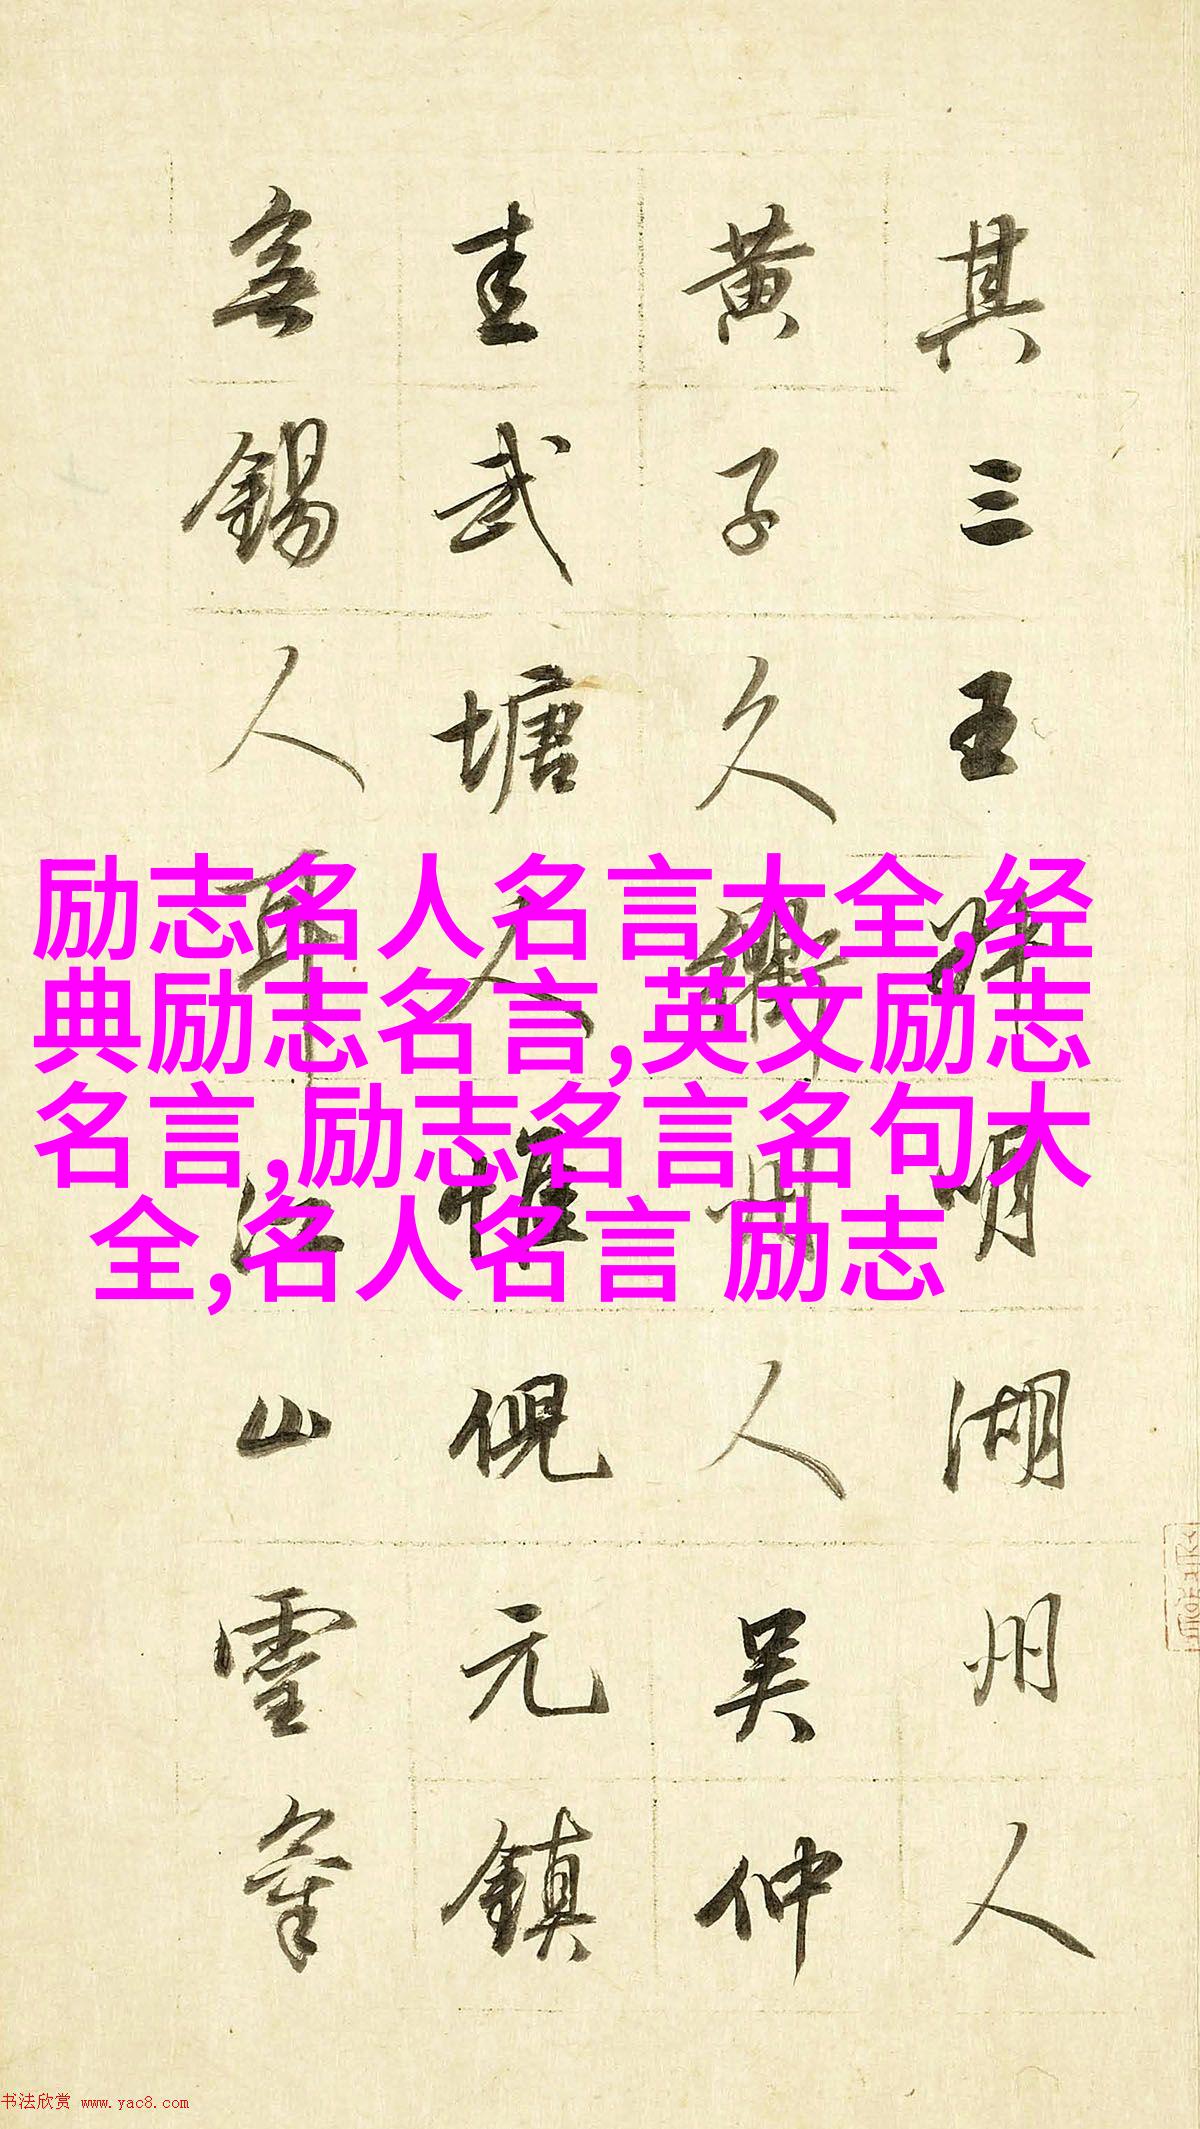 其三王叔明湖州人
黄子久衢州人吴仲
圭武塘人惟倪元鎮
無錫人耳江山靈氣
励志名人名言大全,经
典励志名言,英文励志
名言,励志名言名句大
全,名人名言 励志
书法欣赏 www.yac8.com